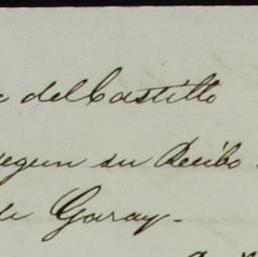 del Castillo
segun su Recibo
de Garay-